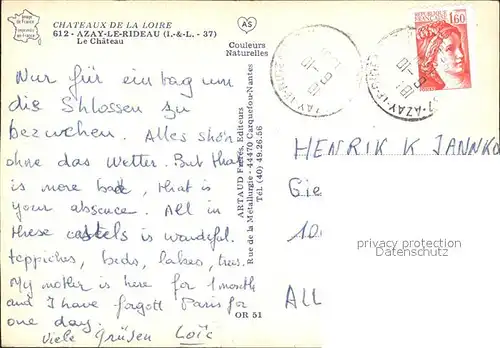 Image de France
CHATEAUX DE LA LOIRE
612 - AZAY-LE-RIDEAU (I.-&-L. - 37)
Le Château
AS
Couleurs
Naturelles
REPUBLIQUE
FRANÇAISE
1,60
AZAY-LE-RIDEAU
Nur für ein tag um
die Schlossen zu
bezuchen. Alles shön
ohne das Wetter. But that
is more bad, that is
your absence. All in
these castels is wondeful.
teppiches, beds, lakes, trees.
My mother is here for 1 month
and I have forgott Paris for
one day.
Viele Grüsen Loïc
ARTAUD Frères, Editeurs
Rue de la Métallurgie - 44470 Carquefou-Nantes
Tél. (40) 49.26.56
OR 51
HENRIK K JANNKO
Gie
10
ALL
privacy protection
Datenschutz